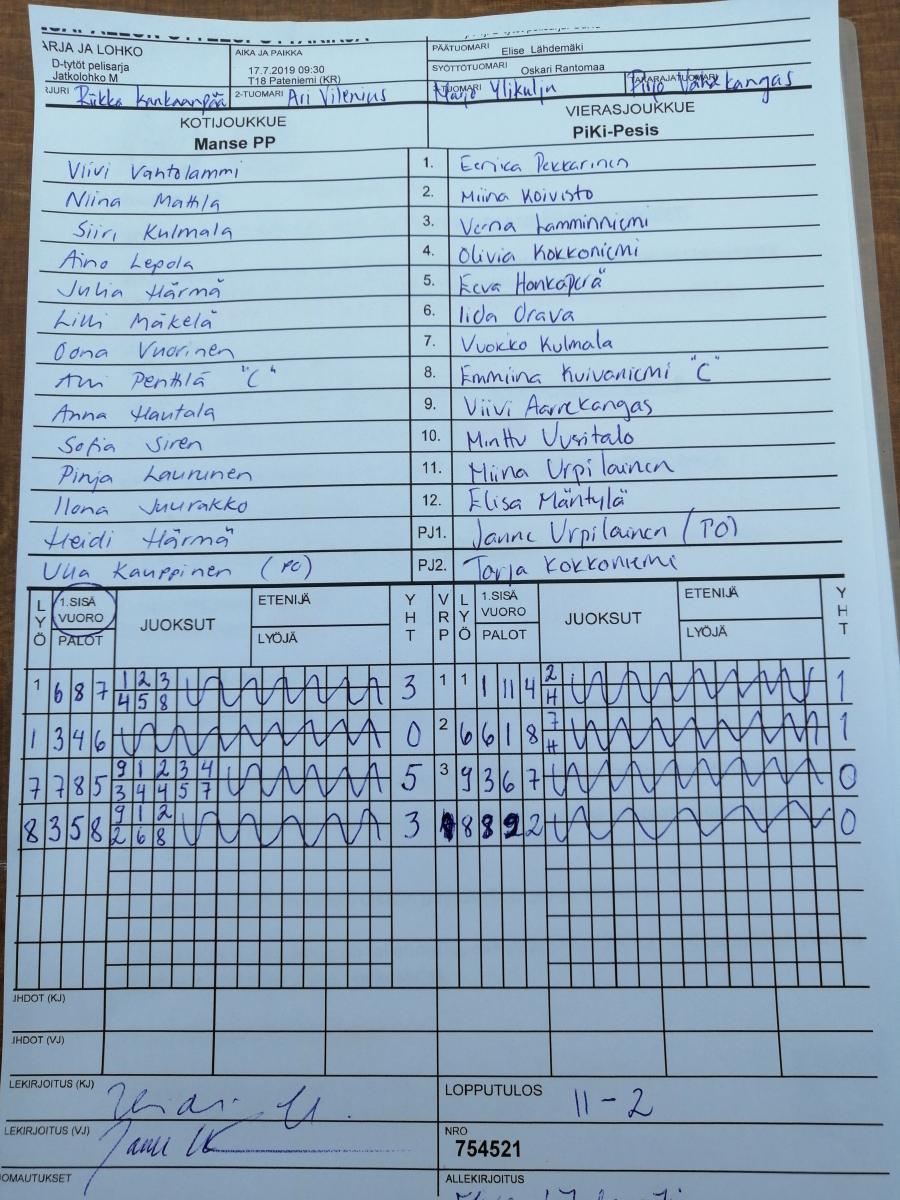 ARJA JA LOHKO
D-tytöt pelisarja
Jatkolohko M
AIKA JA PAIKKA
17.7.2019 09:30
T18 Pateniemi (KR)
PÄÄTUOMARI Elise Lähdemäki
SYÖTTÖTUOMARI Oskari Rantomaa
RJURI Riikka Kankaanpää 2-TUOMARI Ari Vilenius 3-TUOMARI Marjo Ylikulju TAKARAJATUOMARI Pirjo Vanrekangas
KOTIJOUKKUE VIERASJOUKKUE
Manse PP PiKi-Pesis
Viivi Vahtolammi 1. Eerika Pekkarinen
Niina Mattila 2. Miina Koivisto
Siiri Kulmala 3. Verna Lamminniemi
Aino Lepola 4. Olivia Kokkoniemi
Julia Härmä 5. Eeva Honkaperä
Lilli Mäkelä 6. Iida Orava
Oona Vuorinen 7. Vuokko Kulmala
Anni Penttilä "C" 8. Emmiina Kuivaniemi "C"
Anna Hautala 9. Viivi Aarrekangas
Sofia Siren 10. Minttu Uusitalo
Pinja Laurunen 11. Miina Urpilainen
Ilona Juurakko 12. Elisa Mäntylä
Heidi Härmä PJ1. Janne Urpilainen (PO)
Ulla Kauppinen (PO) PJ2. Tarja Kokkoniemi
LYÖ 1.SISÄ VUORO PALOT JUOKSUT ETENIJÄ LYÖJÄ YHT VRP LYÖ 1.SISÄ VUORO PALOT JUOKSUT ETENIJÄ LYÖJÄ YHT
1 6 8 7 1 2 3 3 1 1 1 11 4 2 1
4 5 8 H
1 3 4 6 0 2 6 6 1 8 7 1
H
7 7 8 5 9 1 2 3 4 5 3 9 3 6 7 0
3 4 4 5 7
8 3 5 8 9 1 2 3 8 8 9 2 0
2 6 8
IHDOT (KJ)
IHDOT (VJ)
LEKIRJOITUS (KJ)
LOPPUTULOS 11-2
LEKIRJOITUS (VJ)
NRO
754521
OMAUTUKSET
ALLEKIRJOITUS